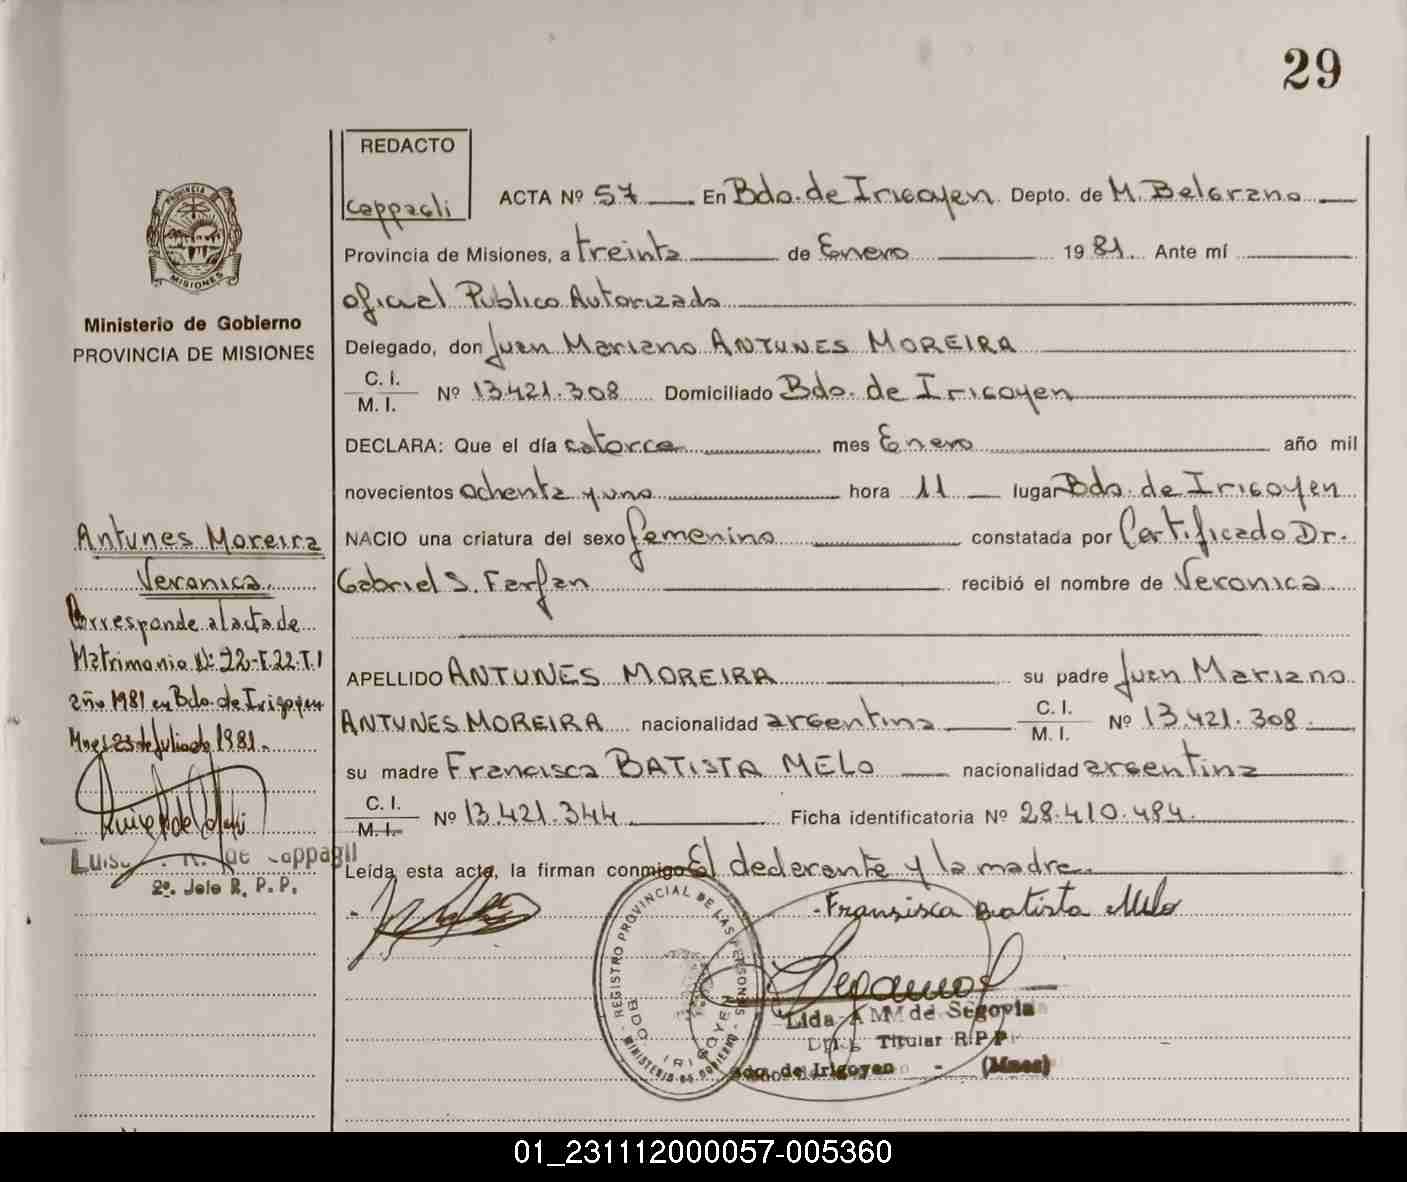 29
REDACTO
Cappagli
ACTA Nº 57 En Bdo. de Irigoyen Depto. de M. Belgrano
Provincia de Misiones, a treinta de Enero 1981. Ante mí
oficial Publico Autorizado
Delegado, don Juan Mariano ANTUNES MOREIRA
C. I.
M. I. Nº 13.421.308 Domiciliado Bdo. de Irigoyen
DECLARA: Que el día catorce mes Enero año mil
novecientos ochenta y uno hora 11 lugar Bdo. de Irigoyen
NACIO una criatura del sexo femenino constatada por Certificado Dr.
Gabriel S. Farfan recibió el nombre de Veronica
APELLIDO ANTUNES MOREIRA su padre Juan Mariano
ANTUNES MOREIRA nacionalidad argentina C. I. M. I. Nº 13.421.308
su madre Francisca BATISTA MELO nacionalidad argentina
C. I.
M. I. Nº 13.421.344 Ficha identificatoria Nº 28.410.484.
Leída esta acta, la firman conmigo El declarante y la madre.
Fransisca Batista Melo
REGISTRO PROVINCIAL DE LAS PERSONAS
MINISTERIO DE GOBIERNO
BDO. IRIGOYEN
Lida A M de Segovia
Titular R.P.P
Bdo. de Irigoyen - (Mnes)
PROVINCIA
MISIONES
Ministerio de Gobierno
PROVINCIA DE MISIONES
Antunes Moreira
Veronica
Corresponde al acta de
Matrimonio Nº 22-F.22-T.I
año 1981 en Bdo. de Irigoyen
Mnes 23 de Julio de 1981.
Luisa R. de Cappagli
2º. Jefe R. P. P.
01_231112000057-005360